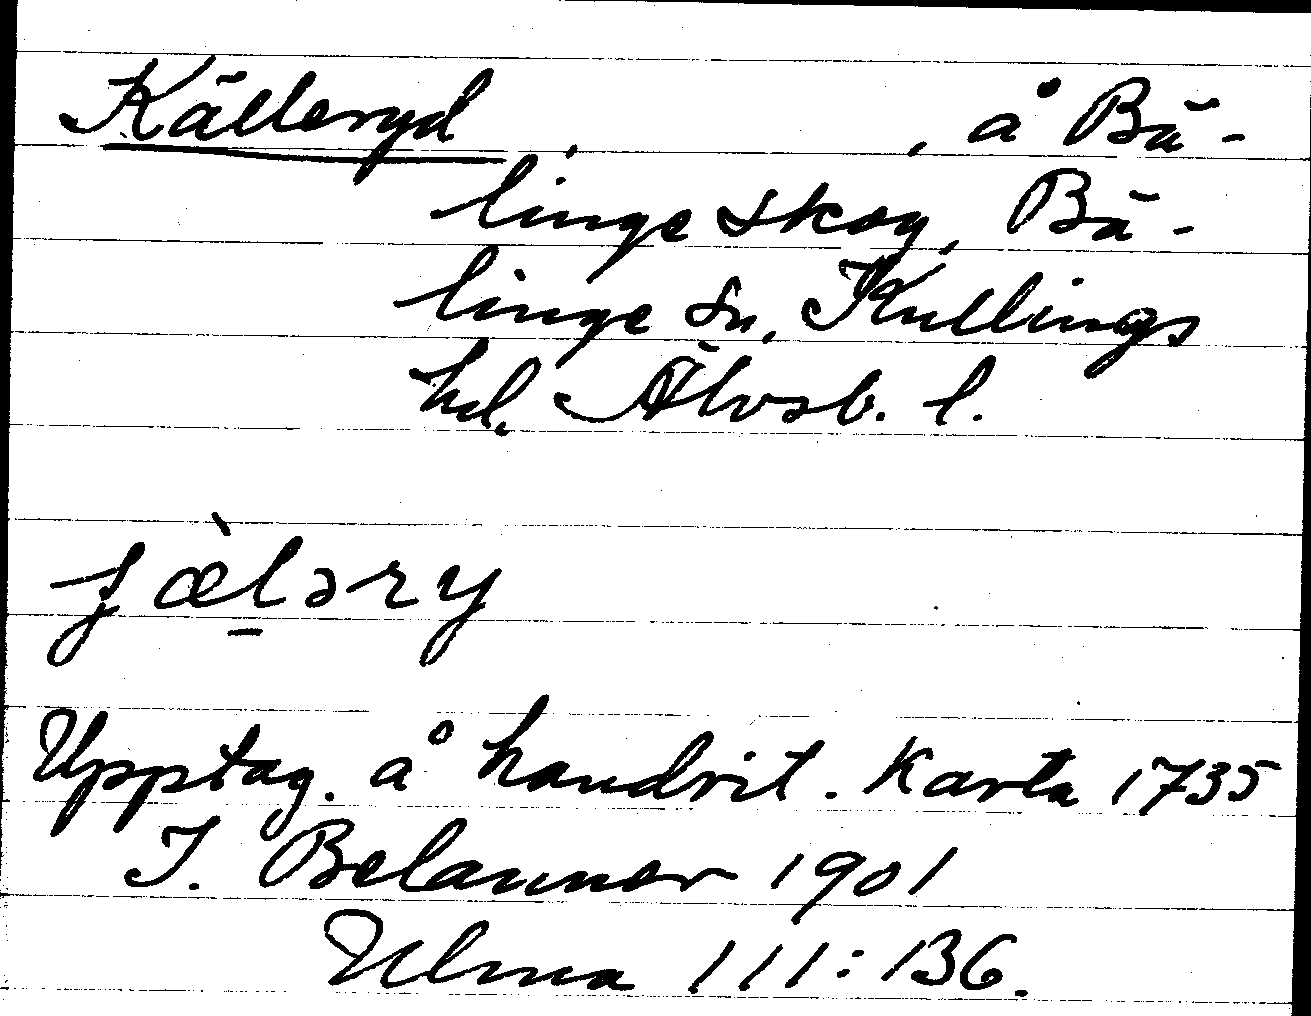 Källeryd, , å Bä-
linge skog, Bä-
linge sn, Kullings
hd. Älvsb. l.
ʃæ̀l̠əry
Upptag. å handrit. karta 1735
I. Belanner 1901
Ulma 111:136.